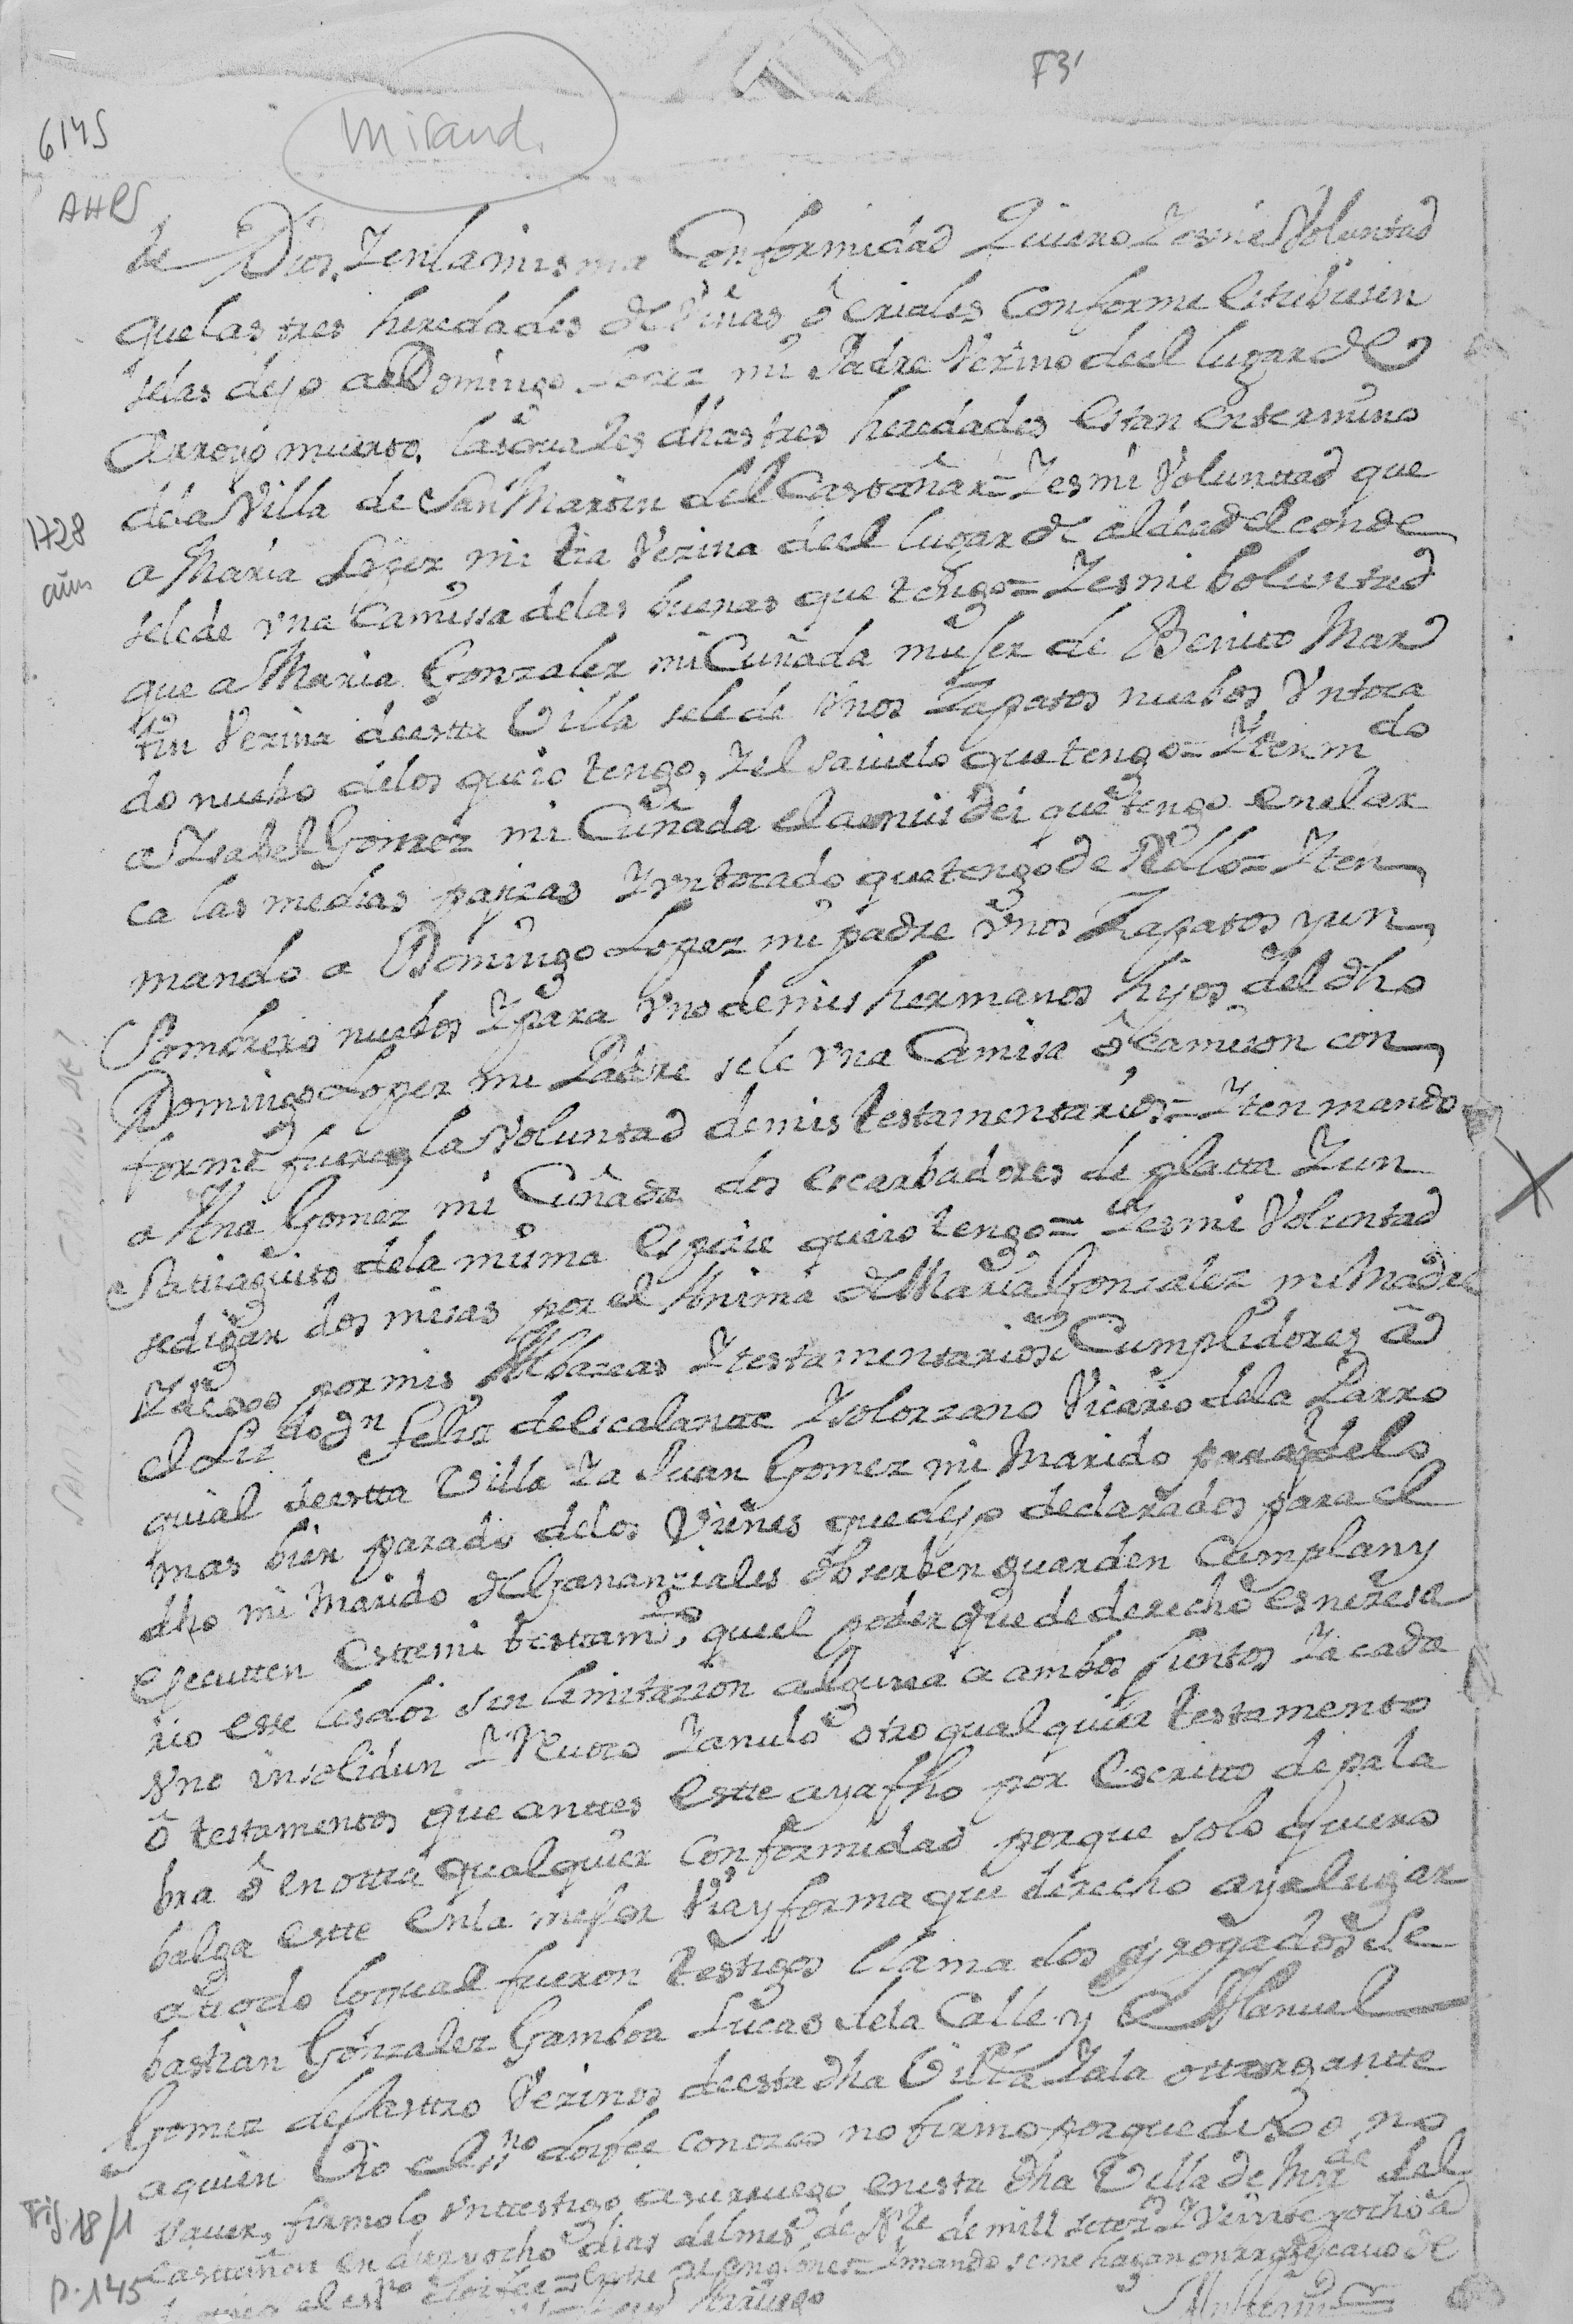 F31
6145
Mirand.
AHPS
de Dios, Y en la misma Conformidad Quiero Y es mi Voluntad
que las tres heredades de Viñas ô Eriales Conforme Estubiesen
selas dejo a Domingo Lopez mi Padre Vezino deel lugar de
Arroyo muerto, las quales dhas tres heredades Estan en termino
de la Villa de San Martin del Castañar = Y es mi Voluntad que
1728
a Maria Lopez mi tia Vezina deel lugar de aldea del conde
sele de vna Camissa delas buenas que tengo = Y es mi boluntad
que a Maria Gonzalez mi Cuñada muger de Benito Mar
tin Vezina deestta Villa sele de Vnos Zapatos nuebos Vn toca
do nuebo delos que io tengo, Y el saiuelo que tengo = Yten mdo
a Ysabel Gomez mi Cuñada el que tengo en el ar
ca las medias pajizas Y vn tocado que tengo de = Yten
mando a Domingo Lopez mi padre Vnos Zapatos y un
Sombrero nuebos Y para Vno de mis hermanos hijos del dho
Domingo Lopez mi Padre se le vna Camisa ô Camison con
forme fuere la Voluntad de mis testamentarios = Yten mando
a Ana Gomez mi Cuñada dos escarbadores de platta Y un
Santiaguito dela misma Especie que io tengo = Y es mi Voluntad
sedigan dos misas por el Anima de Maria Gonzalez mi Madre
Y dejo por mis Albazeas Y testamentarios Cumplidores â
el Lizdo Dn Felix de Escalante Y solorzano Vicario dela Parro
quial deestta Villa Y a Juan Gomez mi Marido para que delo
mas bien parado delos Vienes que dejo declarados para el
dho mi Marido de Gananziales obserben guarden Cumplan y
Ejecutten Estte mi testtamto, que el poder que de derecho es nezesa
rio esse les doi sin limitazion alguna a ambos juntos Y a cada
vno insolidun Y Reuoco Y anulo otro qualquier testamento
ô testamentos que anttes Estte aya fho por Escritto de pala
bra ô en ottra qualquier Conformidad porque solo quiero
balga Estte en la mejor Via y forma que derecho aya lugar
a ttodo lo qual fueron testigos llamados y rogados Se
bastian Gonzalez Gamboa Lucas dela Calle y Manuel
Gomez de Casttro Vezinos deesta dha Villa Y a la ottorgantte
a quien Yo el ssno doi fee conozco no firmo porque dixo no
sauer, firmolo vn testigo a su rruego en esta dha Villa de Mirda del
Fig. 18/1
Casttañar en diez y ocho dias del mes de Nre de mill setezs Y Veinte y ocho a
p. 145
el essno doi fee = entre Renglones = Y mando se me hagan de